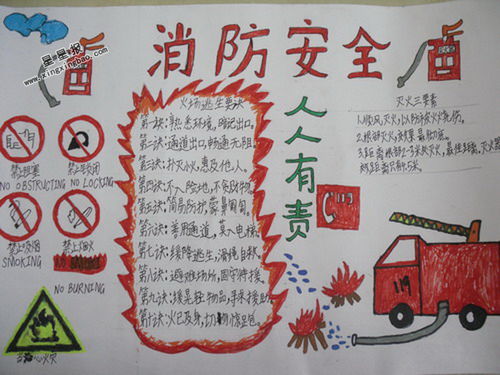 星星报
www.xingxingbao.com
消防安全
人人有责
火场逃生要诀
第一诀:熟悉环境,暗记出口。
第二诀:通道出口,畅通无阻。
第三诀:扑灭小火,惠及他人。
第四诀:不入险地,不贪财物。
第五诀:简易防护,蒙鼻匍匐。
第六诀:善用通道,莫入电梯。
第七诀:缓降逃生,滑绳自救。
第八诀:避难场所,固守待援。
第九诀:缓晃轻抛物,寻求援助。
第十诀:火已及身,切勿惊跑。
灭火三要素
1.顺风灭火,以防被火烧伤。
2.根部灭火,效果最彻底。
3.距离根部2-3米处灭火,最佳距离。灭火器
喷距离只有5米
禁止阻塞
NO OBSTRUCTING
禁止锁闭
NO LOCKING
禁止吸烟
SMOKING
禁止烟火
NO BURNING
当心火灾
119